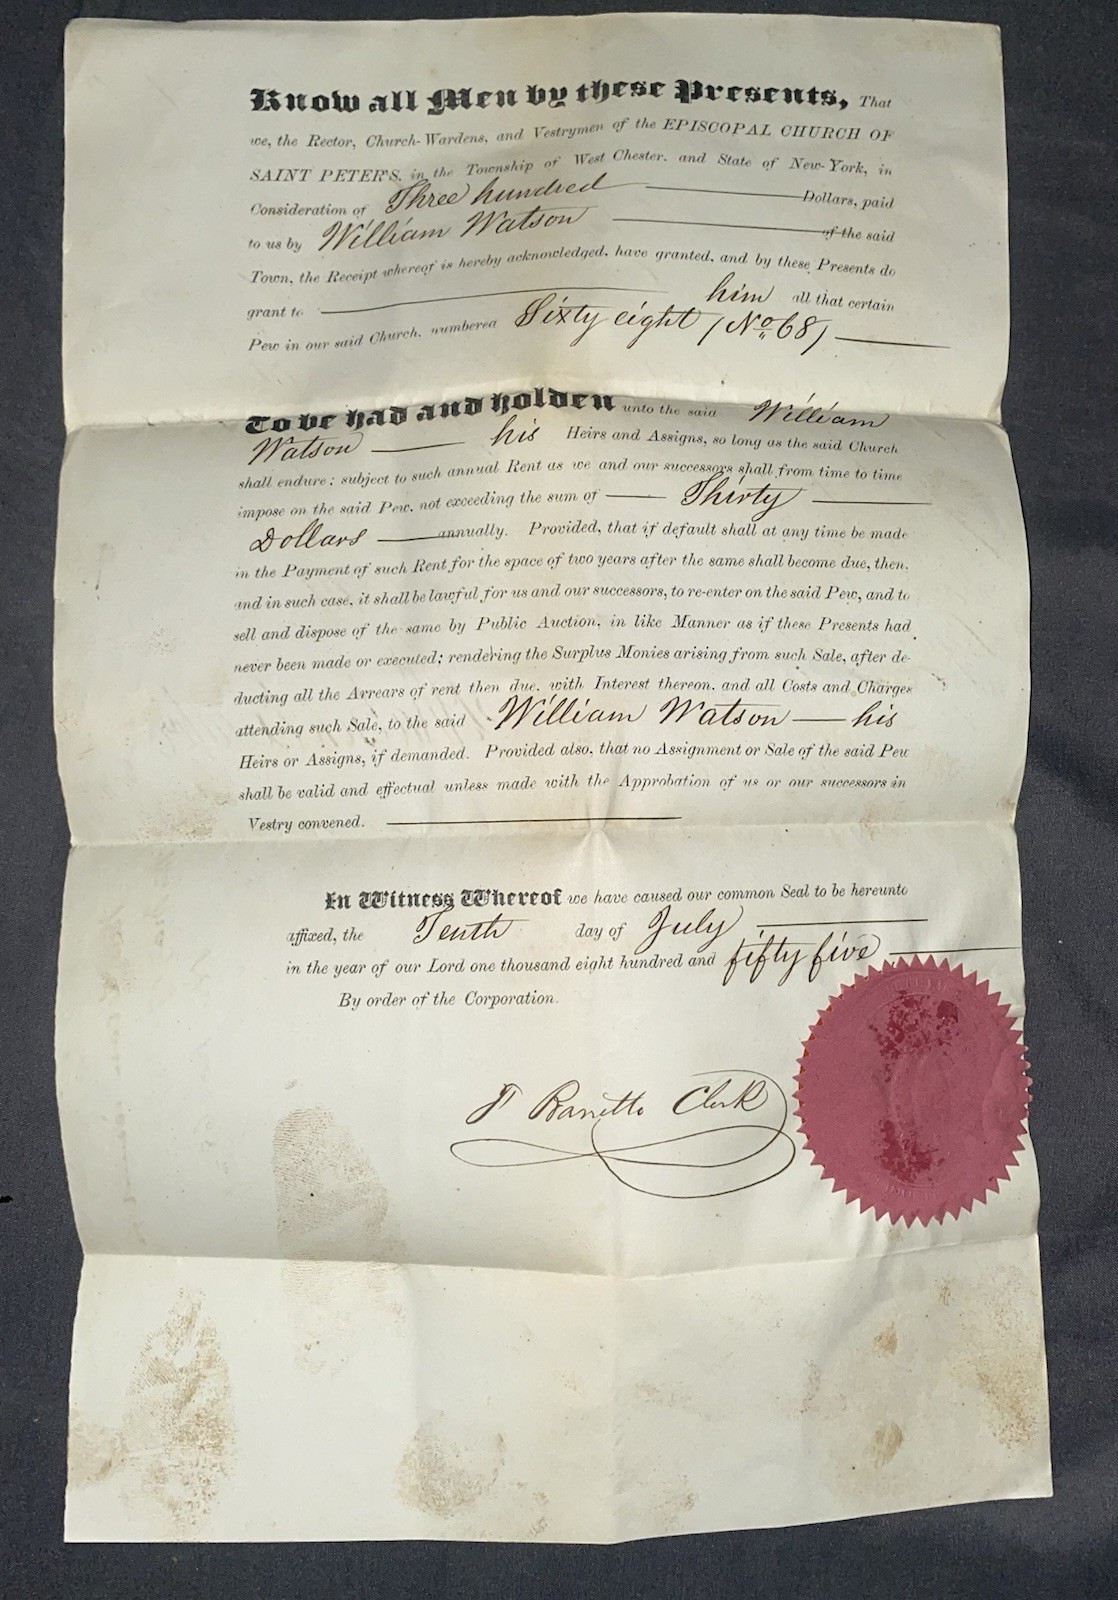 Know all Men by these Presents, That
we, the Rector, Church-Wardens, and Vestrymen of the EPISCOPAL CHURCH OF
SAINT PETER'S, in the Township of West Chester, and State of New-York, in
Consideration of Three hundred Dollars, paid
to us by William Watson of the said
Town, the Receipt whereof is hereby acknowledged, have granted, and by these Presents do
grant to him all that certain
Pew in our said Church, numbered Sixty eight (No 68)
To be had and holden unto the said William
Watson his Heirs and Assigns, so long as the said Church
shall endure; subject to such annual Rent as we and our successors shall from time to time
impose on the said Pew, not exceeding the sum of Thirty
Dollars annually. Provided, that if default shall at any time be made
in the Payment of such Rent for the space of two years after the same shall become due, then,
and in such case, it shall be lawful for us and our successors, to re-enter on the said Pew, and to
sell and dispose of the same by Public Auction, in like Manner as if these Presents had
never been made or executed; rendering the Surplus Monies arising from such Sale, after de-
ducting all the Arrears of rent then due, with Interest thereon, and all Costs and Charges
attending such Sale, to the said William Watson — his
Heirs or Assigns, if demanded. Provided also, that no Assignment or Sale of the said Pew
shall be valid and effectual unless made with the Approbation of us or our successors in
Vestry convened.
In Witness Whereof we have caused our common Seal to be hereunto
affixed, the Tenth day of July
in the year of our Lord one thousand eight hundred and fifty five
By order of the Corporation.
Barretto Clerk